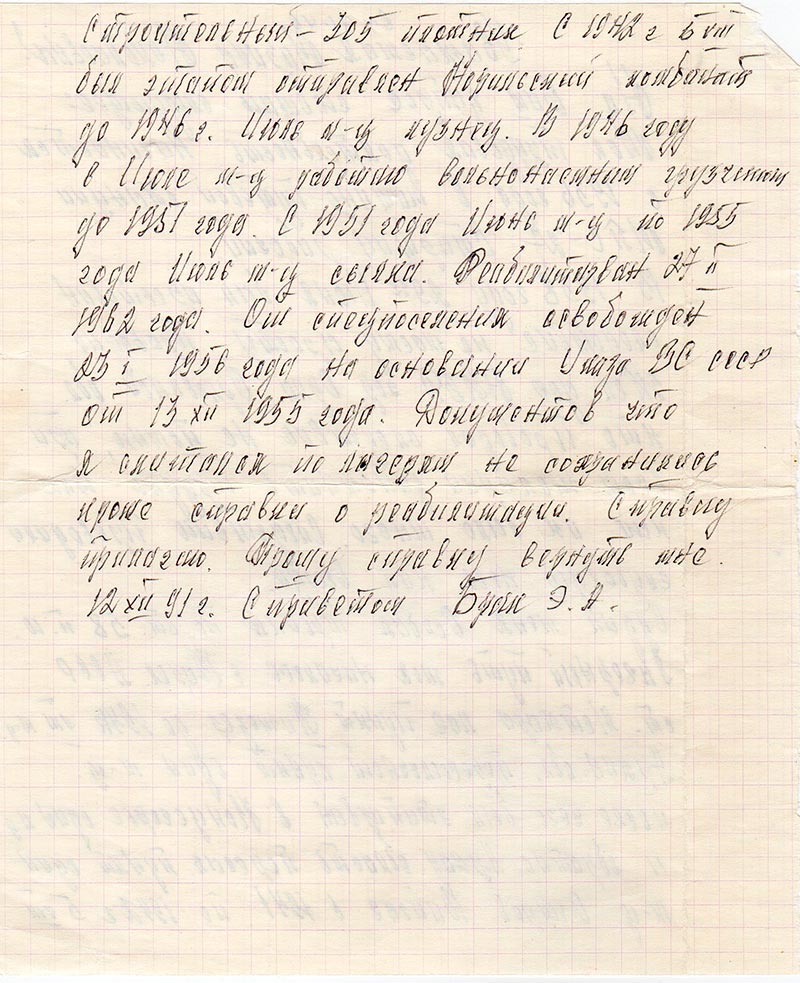 Строительный – 305 плотник С 1942 г 5 VIII
был этапом отправлен Норильский комбинат
до 1946 г. Июль м-ц кузнец. В 1946 году
в Июле м-ц работаю вольнонаемным грузчиком
до 1951 года. С 1951 года Июнь м-ц по 1955
года Июль м-ц ссылка. Реабилитирван 27 II
1962 года. От спецпоселения освобожден
23 I 1956 года на основании Указа ВС СССР
от 13 XII 1955 года. Документов что
я скитался по лагерям не сохранилось
кроме справки о реабилитации. Справку
прилагаю. Прошу справку вернуть мне.
12 XII 91 г. С приветом Э. А.